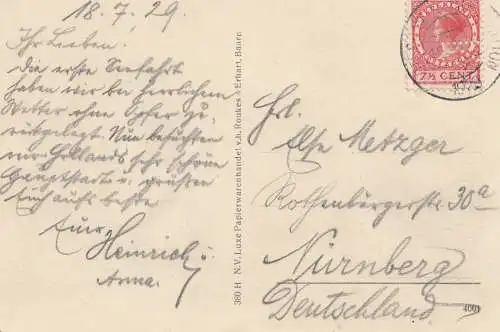 18.7.29.
Ihr Lieben!
Die erste Seefahrt
haben wir bei herrlichem
Wetter ohne Opfer zu-
rückgelegt. Nun besuchten
wir Hollands sehr schöne
Hauptstadt u. grüßen
Euch aufs beste
Eure
Heinrich u.
Anna.
380 H N.V. Luxe Papierwarenhandel v.h. Roukes & Erhart, Baarn
NEDERLAND
7½ CENT
Frl.
Ilse Metzger
Rothenburgerstr. 30a
Nürnberg
Deutschland
4001